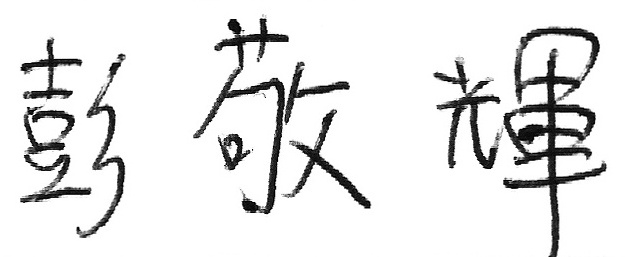 彭敬輝